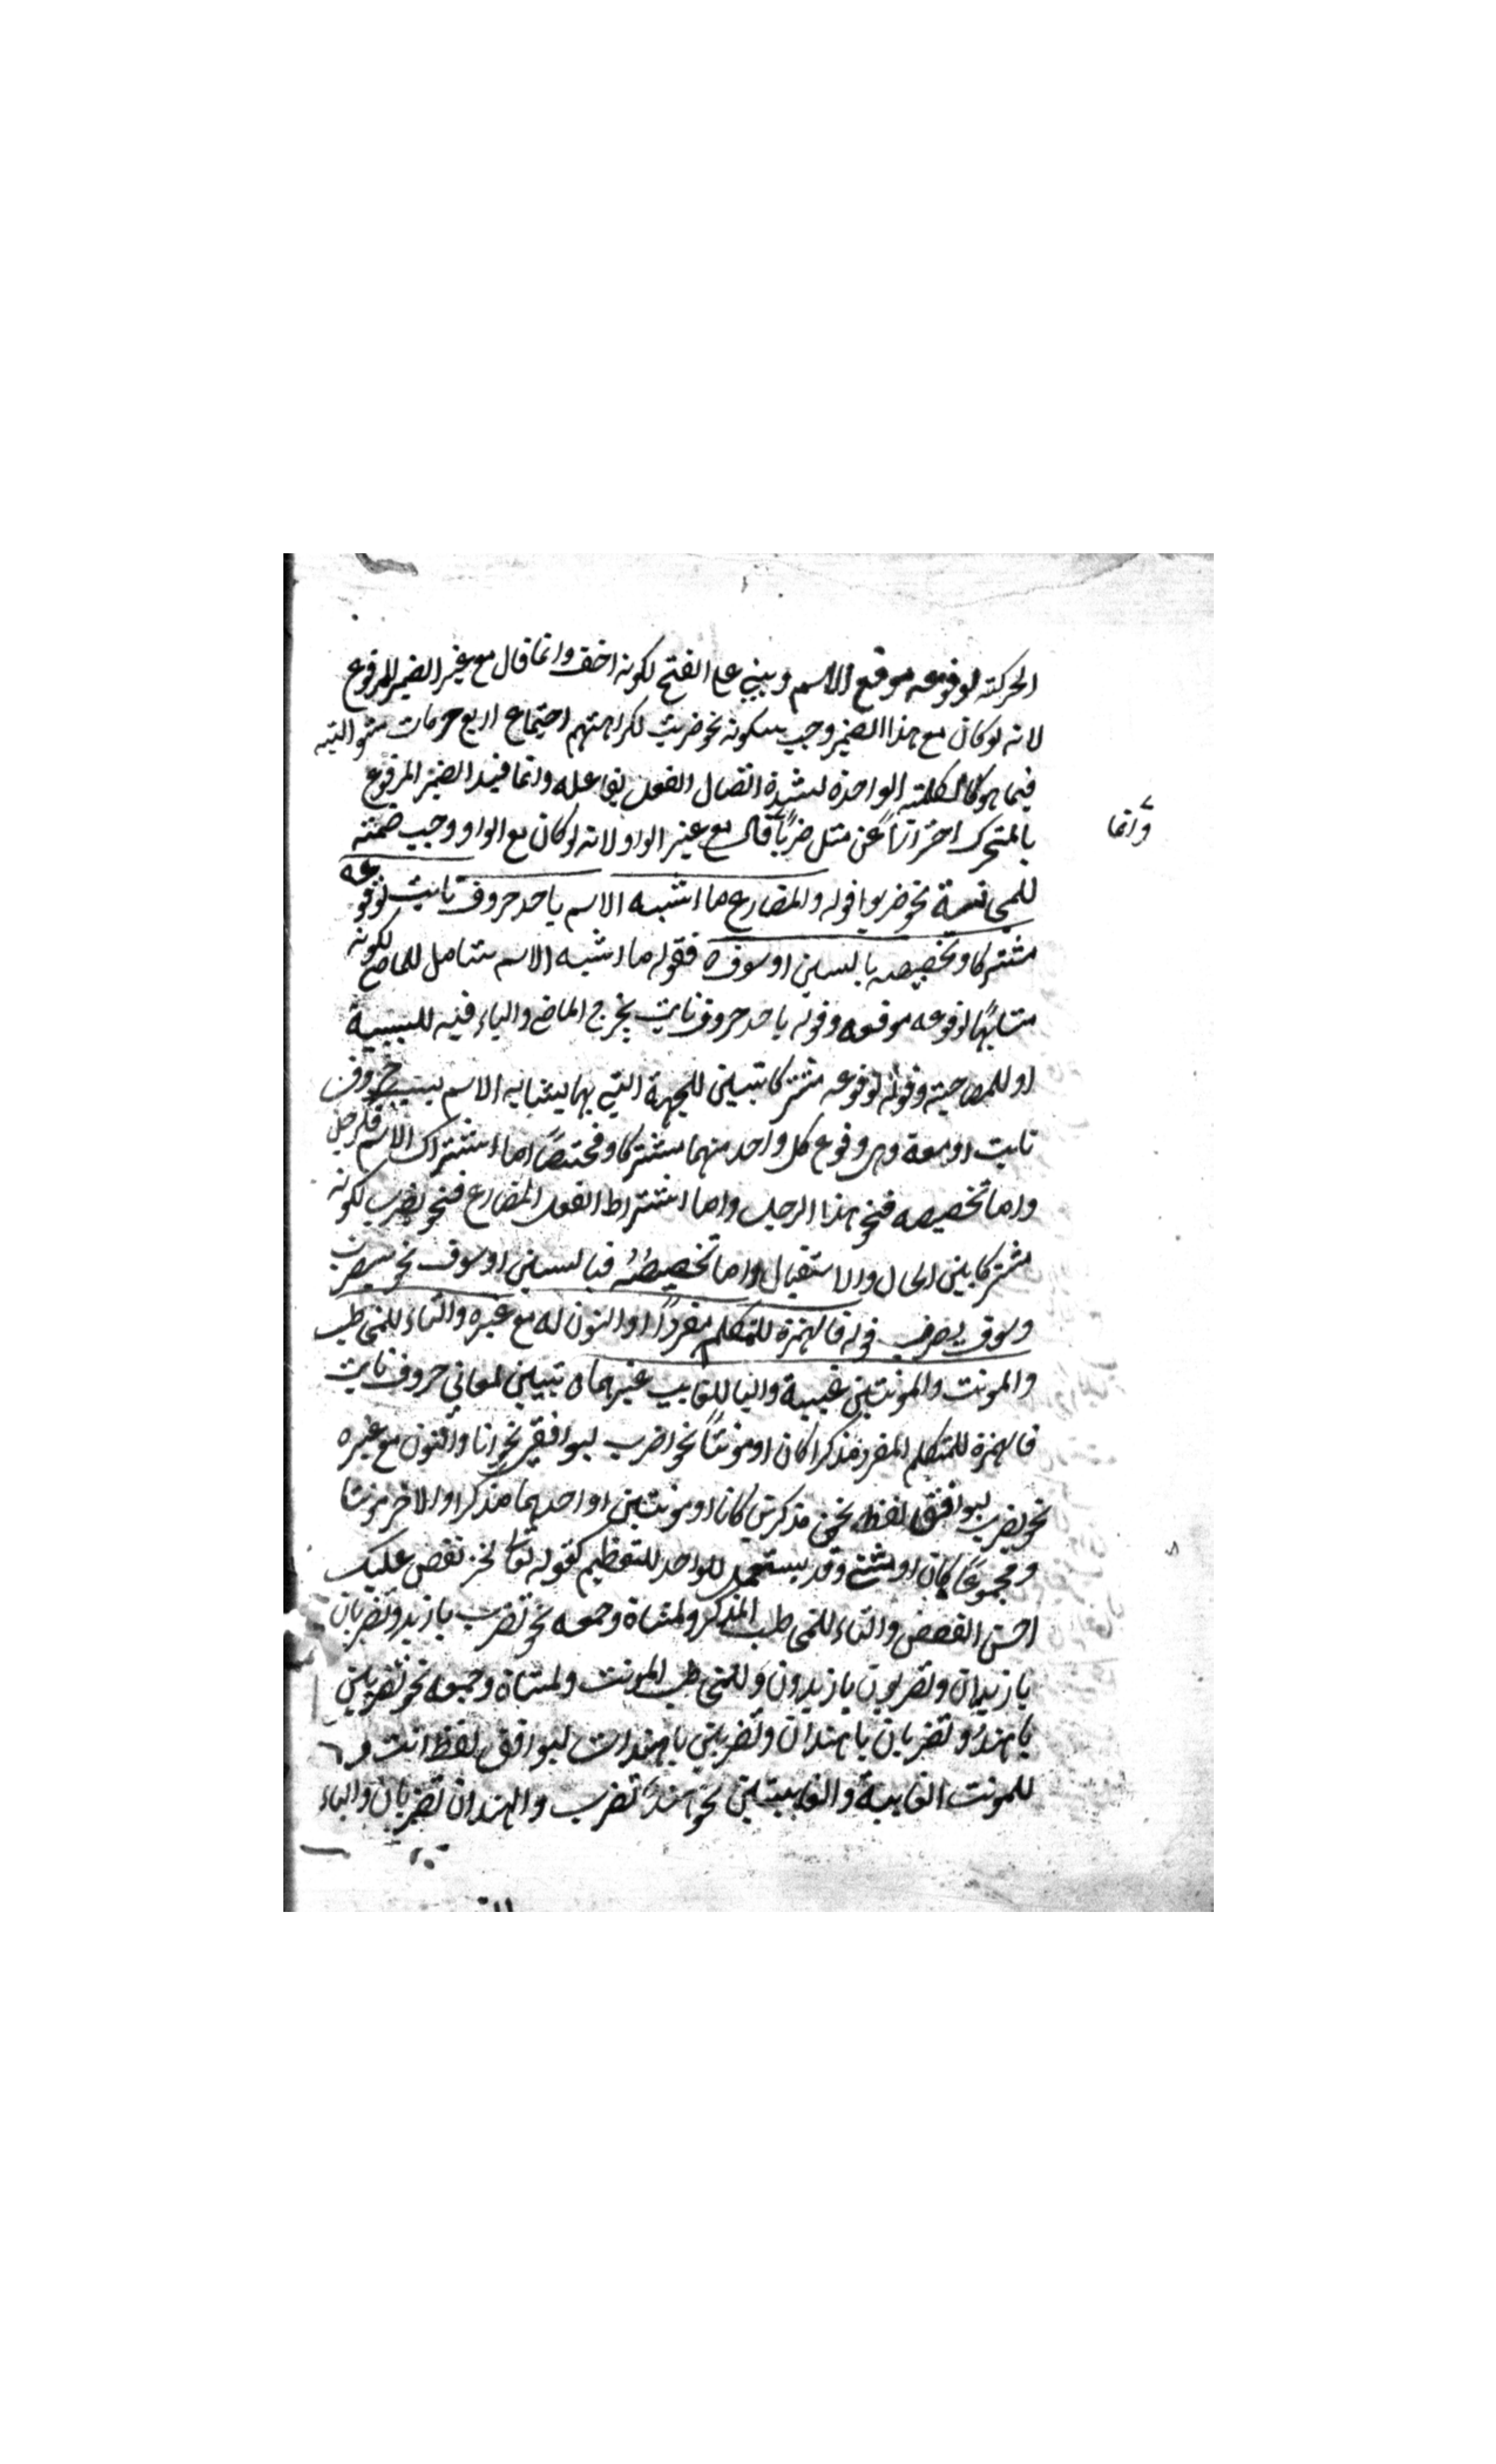 الحركة لوقوعه موقع الاسم وبني على الفتح لكونه اخف وانما قال مع غير الضمير المرفوع
لانه لو كان مع هذا الضمير وجب سكونه نحو ضربت لكراهتهم اجتماع اربع حركات متوالية
فيما هو كالكلمة الواحدة لشدة اتصال الفعل بفاعله وانما قيد الضمير المرفوع
بالمتحرك احترازاً عن مثل ضربا قال مع غير الواو لانه لو كان مع الواو وجب ضمته
وانما
للمجانسة نحو ضربوا قوله والمضارع ما اشبه الاسم باحد حروف نايت لوقوعه
مشتركا وتخصيصه بالسين او سوف فقوله ما اشبه الاسم شامل للماضي لكونه
مشابها لوقوعه موقعه وقوله باحد حروف نايت يخرج الماضي والباء فيه للسببية
او للمصاحبة وقوله لوقوعه مشتركا تبيين للجهة التي بها يشابه الاسم بسبب حروف
نايت او معه وهي وقوع كل واحد منهما مشتركا ومختصاً اما اشتراك الاسم فكرجل
واما تخصيصه فنحو هذا الرجل واما اشتراط الفعل المضارع فنحو يضرب لكونه
مشتركا بين الحال والاستقبال واما تخصيصه فبالسين او سوف نحو سيضرب
وسوف يضرب قوله فالهمزة للمتكلم مفرداً او النون له مع غيره والتاء للمخاطب
والمونث والمونثين غيبة واليا للغايب غيرهما تبيين لمعاني حروف نايت
فالهمزة للمتكلم المفرد مذكرا كان او مونثاً نحو اضرب ليوافق نحو انا والنون مع غيره
نحو نضرب ليوافق لفظ نحن مذكرين كانا او مونثين او احدهما مذكرا والاخر مونثا
ومجموعا كان او مثنى وقد يستعمل للواحد للتعظيم كقوله تعالى نحن نقص عليك
احسن القصص والتاء للمخاطب المذكر ولمثناه وجمعه نحو تضرب يا زيد وتضربان
يا زيدان وتضربون يا زيدون وللمخاطب المونث ولمثناه وجمعه نحو تضربين
يا هند وتضربان يا هندان وتضربن يا هندات ليوافق لفظ انت و
للمونث الغايبة والغايبتين نحو هند تضرب والهندان تضربان والياء